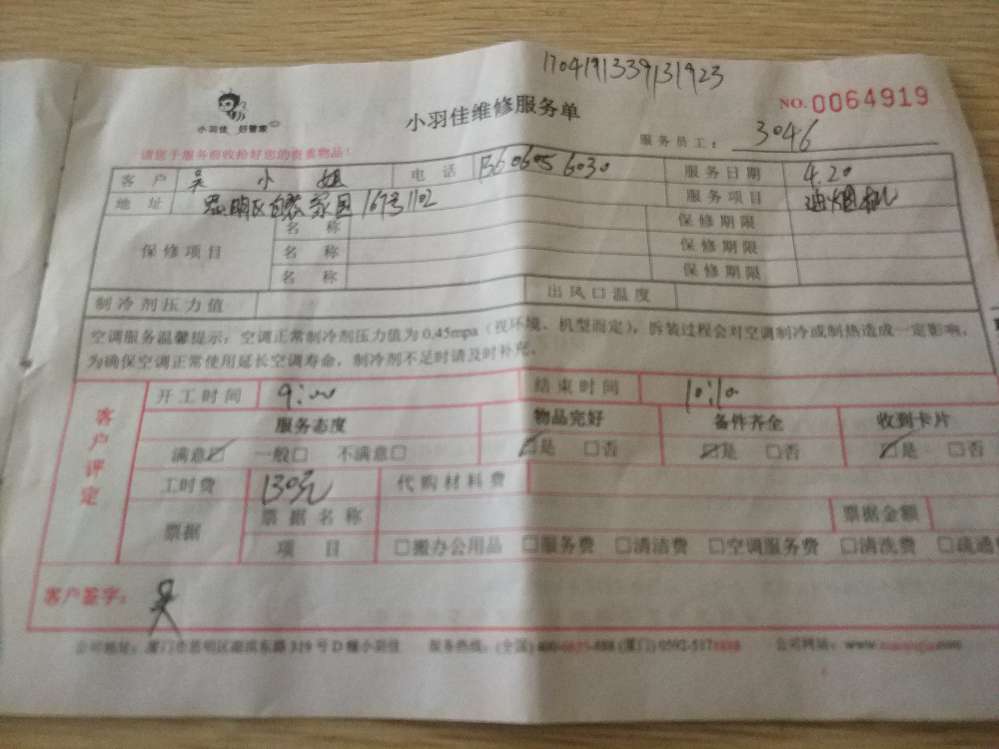 1704191339131923
小羽佳维修服务单
NO.0064919
小羽佳 好管家
服务员工: 3046
请您于服务前收拾好您的贵重物品!
客户 吴小姐 电话 13606056030 服务日期 4.20
地址 思明区 家园167号1102 服务项目 油烟机
保修项目 名称 保修期限
名称 保修期限
名称 保修期限
制冷剂压力值 出风口温度
空调服务温馨提示:空调正常制冷剂压力值为0.45mpa(视环境、机型而定),拆装过程会对空调制冷或制热造成一定影响,
为确保空调正常使用延长空调寿命,制冷剂不足时请及时补充。
客户评定
开工时间 9:00 结束时间 10:10
服务态度 物品完好 备件齐全 收到卡片
满意☑ 一般□ 不满意□ ☑是 □否 ☑是 □否 ☑是 □否
工时费 130元 代购材料费
票据 票据名称 票据金额
项目 □搬办公用品 □服务费 □清洁费 □空调服务费 □清洗费 □疏通
客户签字: 吴
公司地址:厦门市思明区湖滨东路319号D幢小羽佳 服务热线:(全国) (厦门) 公司网站: